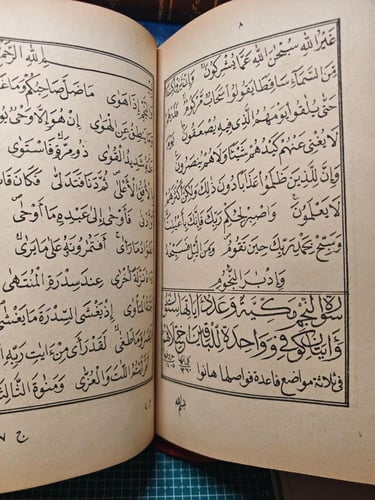 ٨
غَيْرُ اللهِ سُبْحٰنَ اللهِ عَمَّا يُشْرِكُونَ وَإِنْ يَرَوْا كِسْفًا
مِّنَ السَّمَاءِ سَاقِطًا يَقُولُوا سَحَابٌ مَرْكُومٌ فَذَرْهُمْ
حَتّٰى يُلٰقُوا يَوْمَهُمُ الَّذِي فِيهِ يُصْعَقُونَ يَوْمَ
لَا يُغْنِي عَنْهُمْ كَيْدُهُمْ شَيْئًا وَلَا هُمْ يُنْصَرُونَ
وَإِنَّ لِلَّذِينَ ظَلَمُوا عَذَابًا دُونَ ذٰلِكَ وَلٰكِنَّ أَكْثَرَهُمْ
لَا يَعْلَمُونَ وَاصْبِرْ لِحُكْمِ رَبِّكَ فَإِنَّكَ بِأَعْيُنِنَا
وَسَبِّحْ بِحَمْدِ رَبِّكَ حِينَ تَقُومُ وَمِنَ الَّيْلِ فَسَبِّحْهُ
وَإِدْبٰرَ النُّجُومِ
سورة النجم مكية وعدد آياتها ستون
وآيتان كوفي وواحدة للباقين اختلافها
في ثلاثة مواضع قاعدة فواصلها هاتوا
بسم الله
اللهِ
إِذَا هَوٰى مَا ضَلَّ صَاحِبُكُمْ وَمَا
يَنْطِقُ عَنِ الْهَوٰى إِنْ هُوَ إِلَّا وَحْيٌ
شَدِيدُ الْقُوٰى ذُو مِرَّةٍ فَاسْتَوٰى
الْأَعْلٰى ثُمَّ دَنَا فَتَدَلّٰى فَكَانَ
فَأَوْحٰى إِلٰى عَبْدِهِ مَا أَوْحٰى
مَا رَاٰى أَفَتُمٰرُونَهُ عَلٰى مَا يَرٰى
نَزْلَةً أُخْرٰى عِنْدَ سِدْرَةِ الْمُنْتَهٰى
الْمَأْوٰى إِذْ يَغْشَى السِّدْرَةَ مَا يَغْشٰى
وَمَا طَغٰى لَقَدْ رَاٰى مِنْ اٰيٰتِ رَبِّهِ
اللّٰتَ وَالْعُزّٰى وَمَنٰوةَ الثَّالِثَةَ